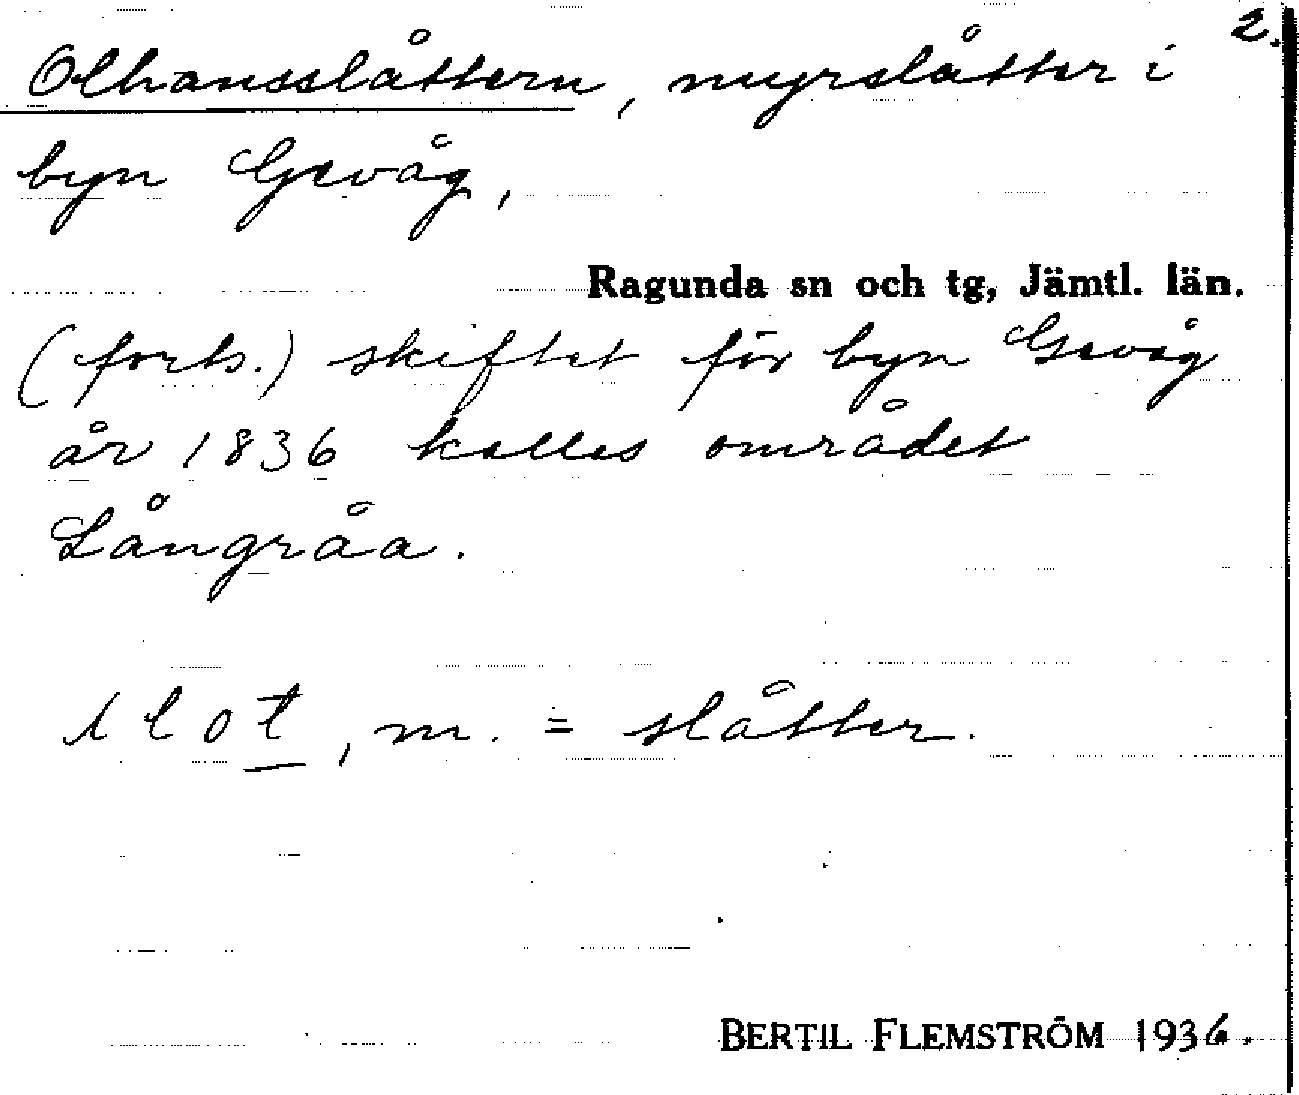 2.
Olhansslåttern, myrslåtter i
byn Gevåg,
Ragunda sn och tg, Jämtl. län.
(forts.) skiftet för byn Gevåg
år 1836 kallas området
Långråa.
slot, m. = slåtter.
BERTIL FLEMSTRÖM 1936.